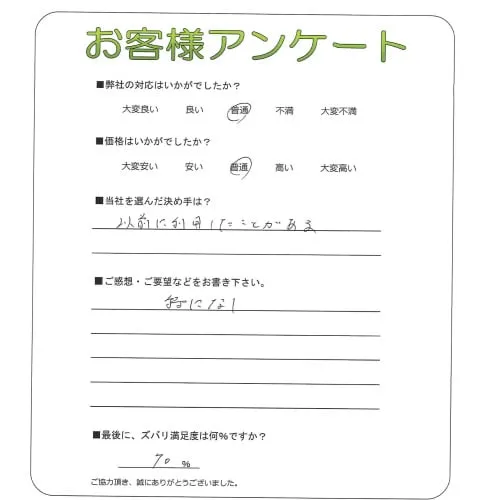 お客様アンケート
■弊社の対応はいかがでしたか？
大変良い 良い 普通 不満 大変不満
■価格はいかがでしたか？
大変安い 安い 普通 高い 大変高い
■当社を選んだ決め手は？
以前に利用したことがある
■ご感想・ご要望などをお書き下さい。
特になし
■最後に、ズバリ満足度は何%ですか？
70 %
ご協力頂き、誠にありがとうございました。